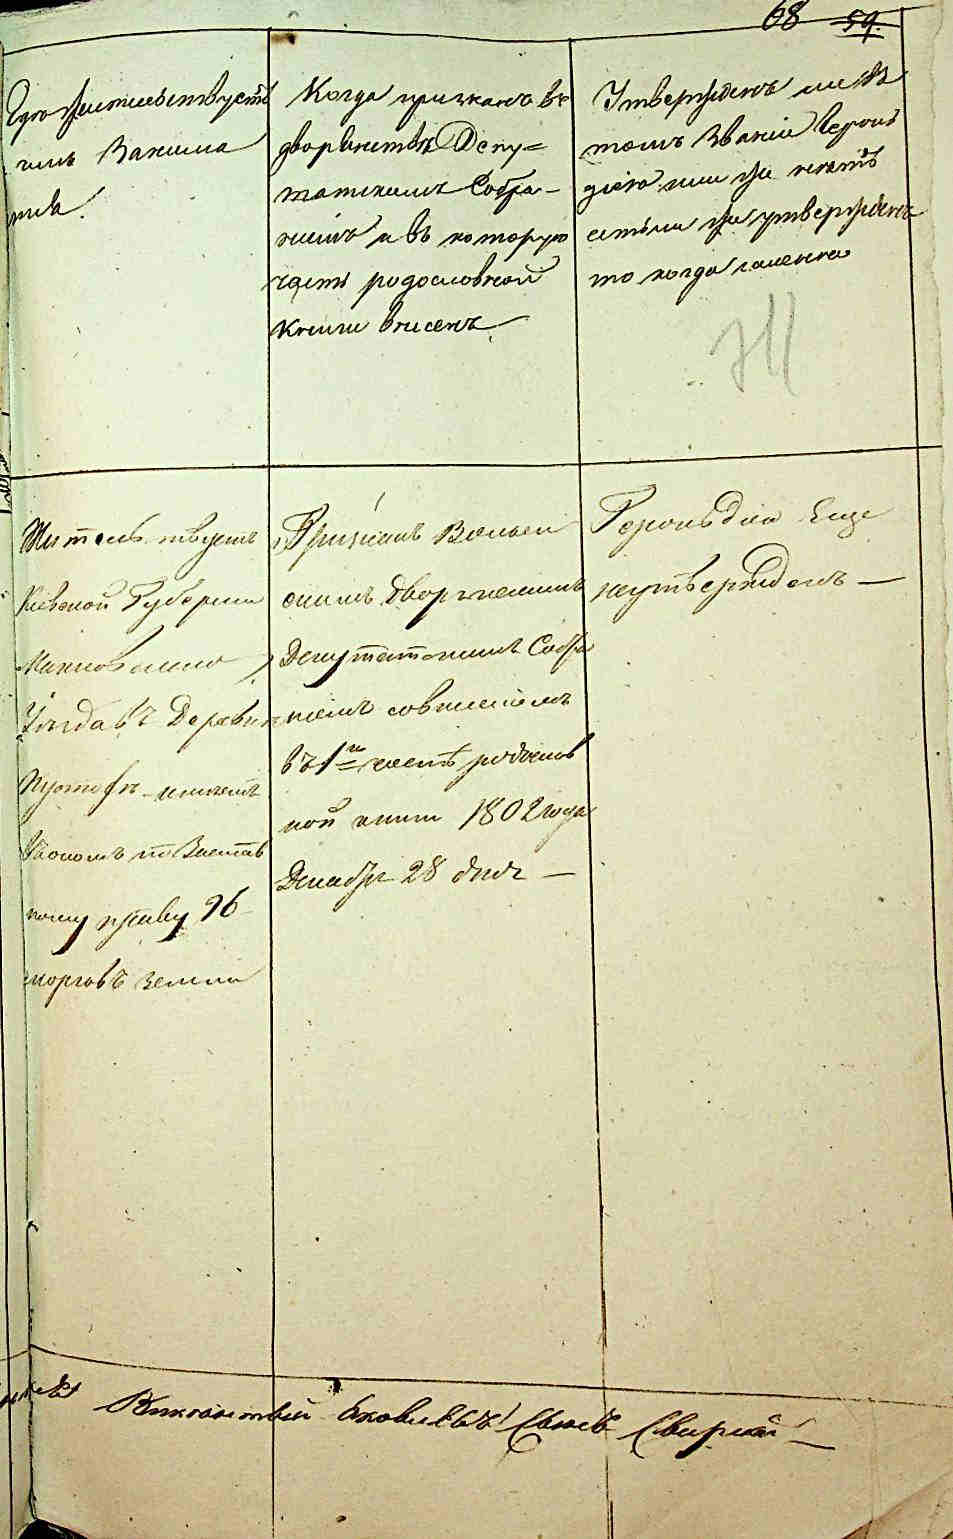 68 59.
Где жительствуетъ
чемъ Занима
тся.
Когда признанъ въ
дворянствѣ Депу=
татскимъ Собра-
ніемъ и въ которую
часть родословной
книги внесенъ
Утвержденъ ли въ
томъ Званіи Герольд
діею или же нетъ
естьли же утвержденъ
то когда именно
Жительствуетъ
Кіевской Губерніи
Липовецкаго
Уѣзда въ Деревни
имѣетъ
по Застав
ному праву 96
морговъ земли
Признанъ Волын
скимъ Дворянскимъ
Депутатскимъ Собра
ніемъ со внесеніемъ
въ 1ю часть родослов
ной книги 1802 года
Декабря 28 дня —
Герольдіею Еще
неутвержденъ —
Викентый Яковлевъ Сынъ Свирскій